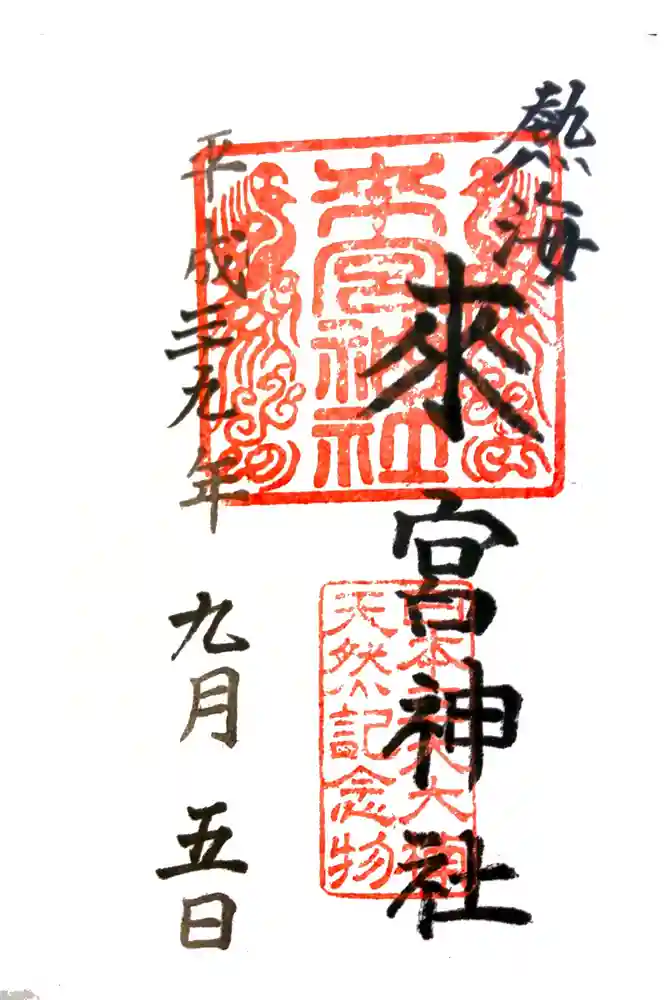 熱海
來宮神社
平成三九年 九月 五日
來宮神社
日本 大楠
天然記念物